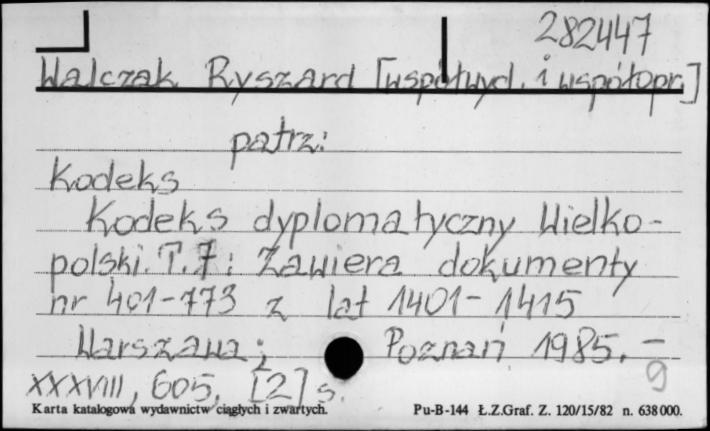 282447
Walczak Ryszard [współwyd. i współopr.]
patrz:
Kodeks
Kodeks dyplomatyczny Wielko-
polski. T. 7: Zawiera dokumenty
nr 401-773 z lat 1401-1415
Warszawa; Poznań 1985. -
XXXVIII, 605, [2] s. 9
Karta katalogowa wydawnictw ciągłych i zwartych. Pu-B-144 Ł.Z.Graf. Z. 120/15/82 n. 638 000.